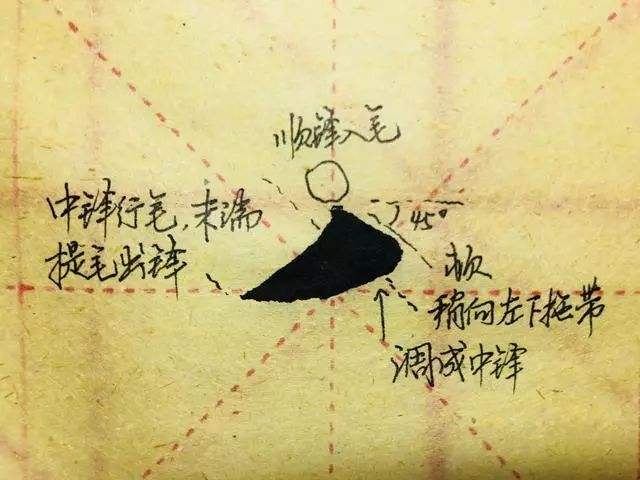 顺锋入毛
中锋行毛,末端
提毛出锋
45°
顿
稍向左下拖带
调成中锋